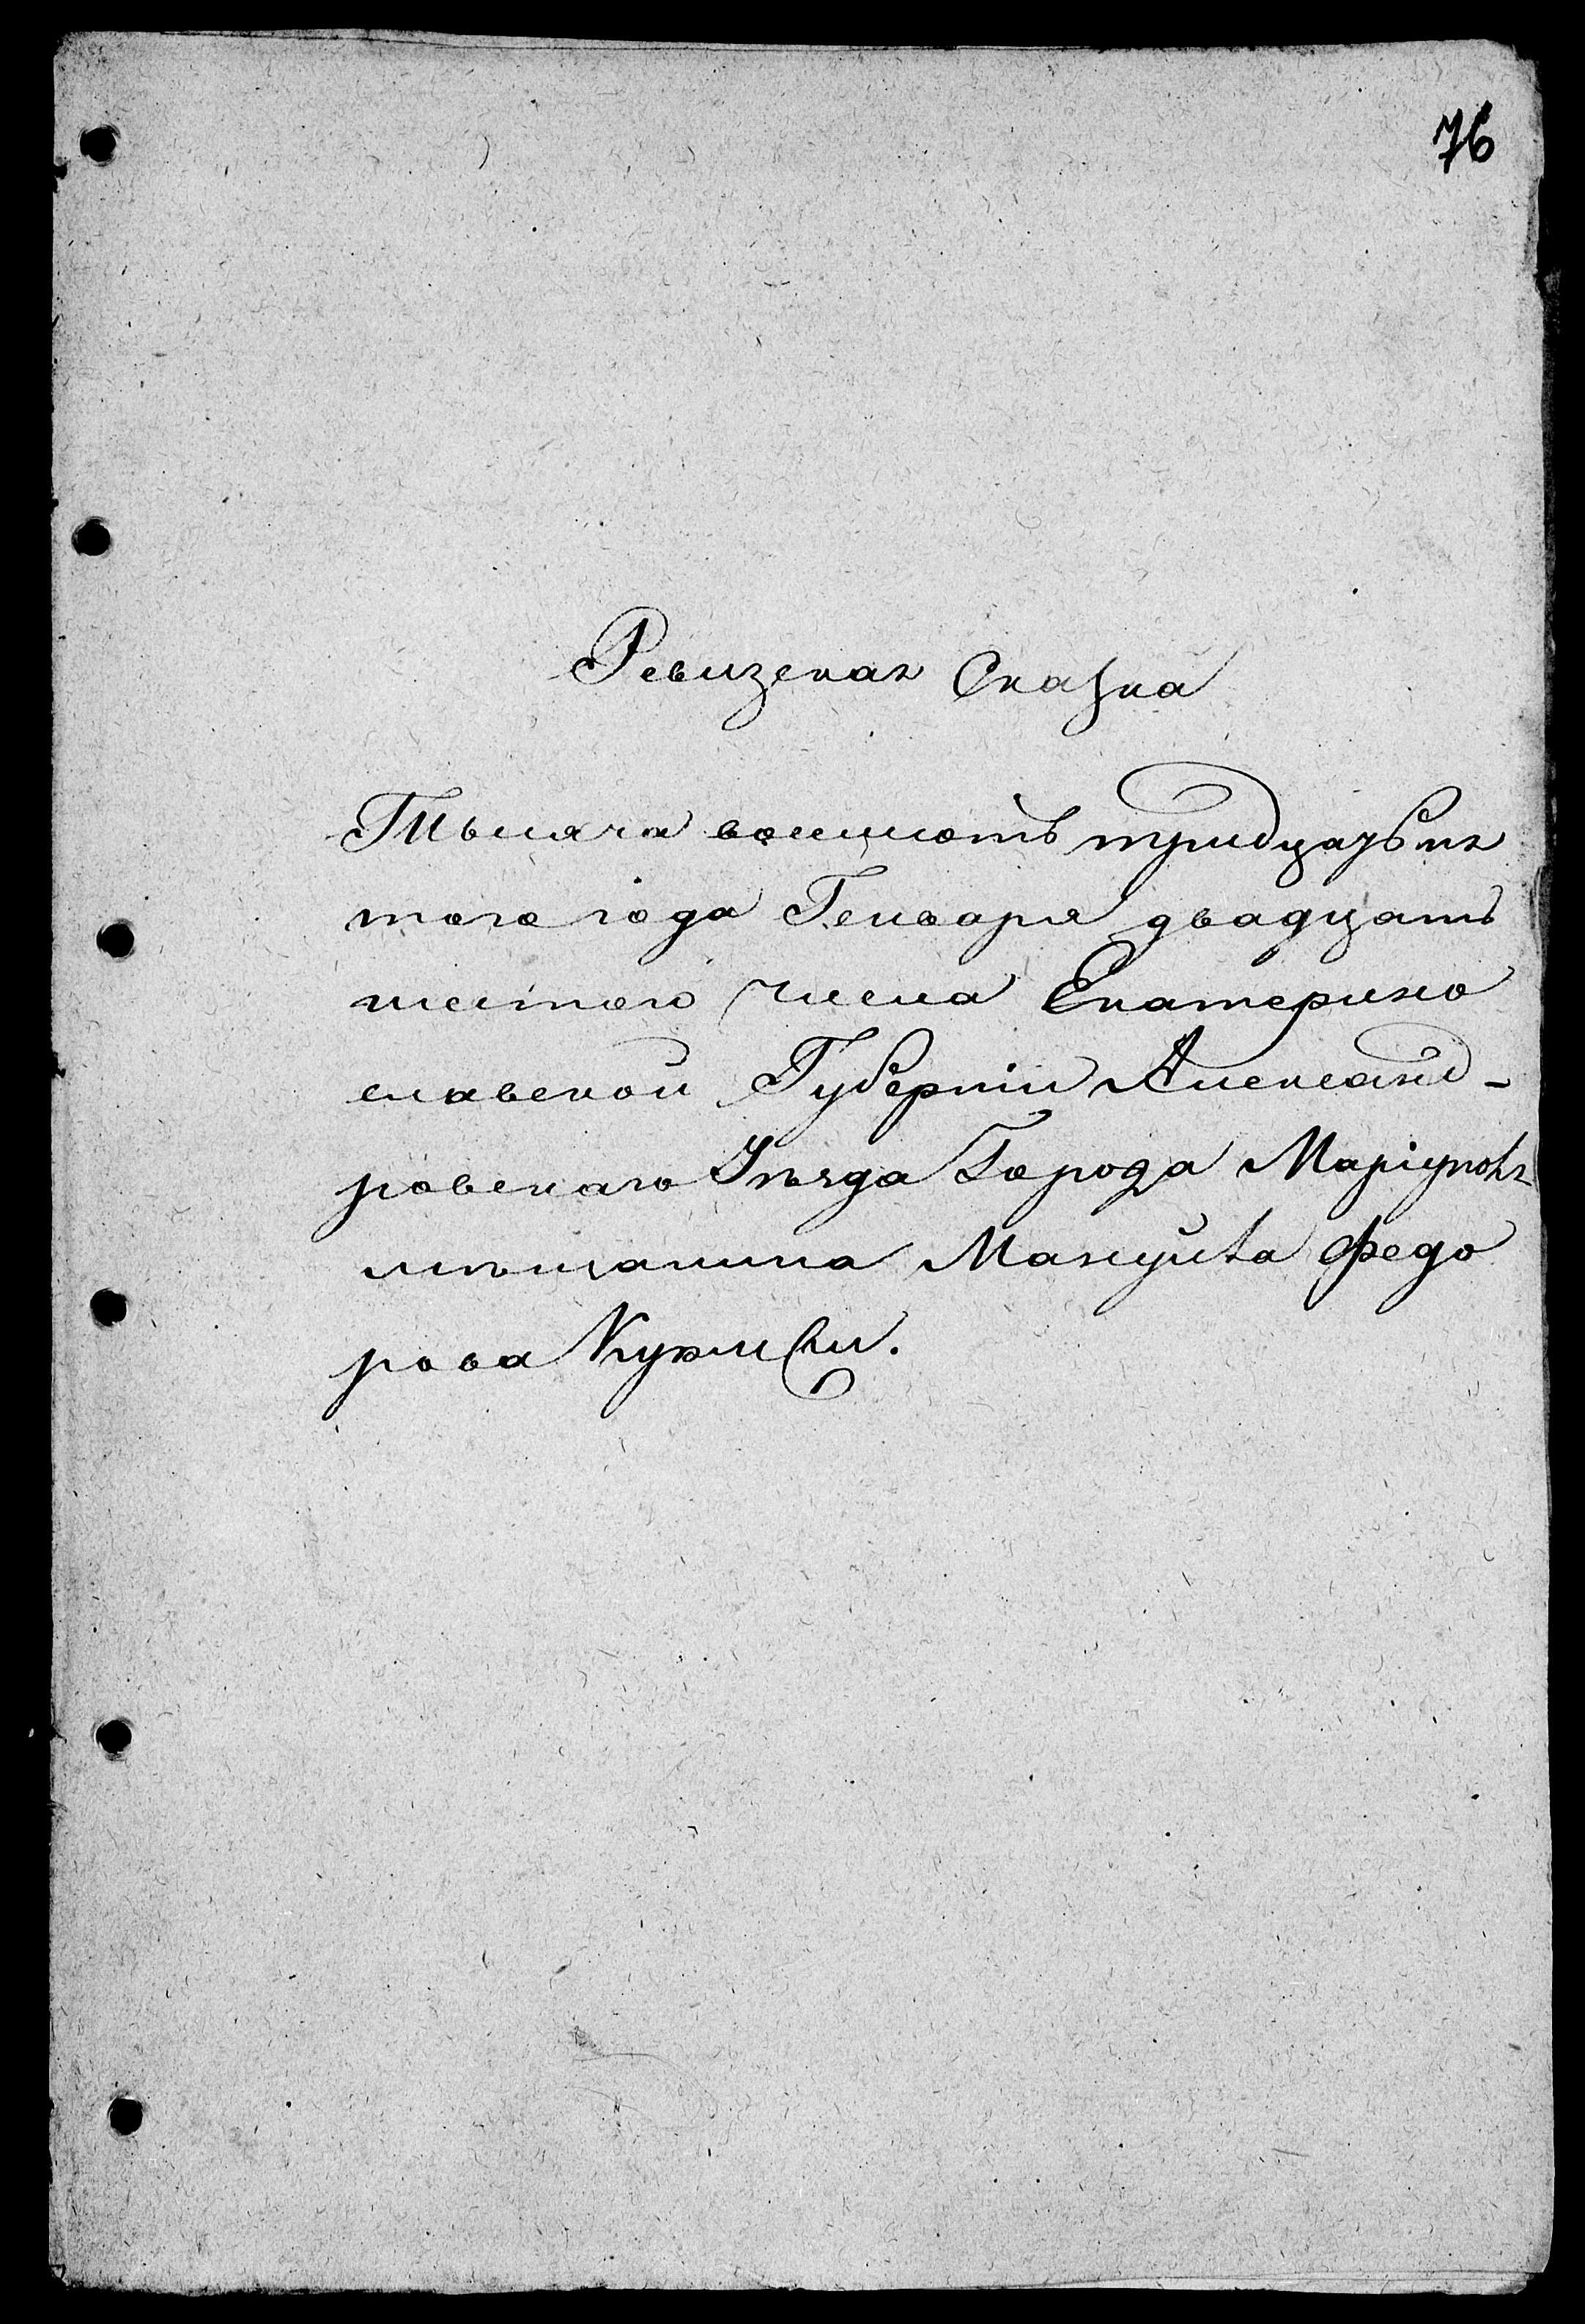 76
Ревизская Сказка
Тысяча восемсотъ тридцать пя
того года Генваря двадцать
шестого числа Екатерино
славской Губерніи Александ-
ровскаго Уѣзда Города Маріупол
мѣщанина Мануйла Федо
рова